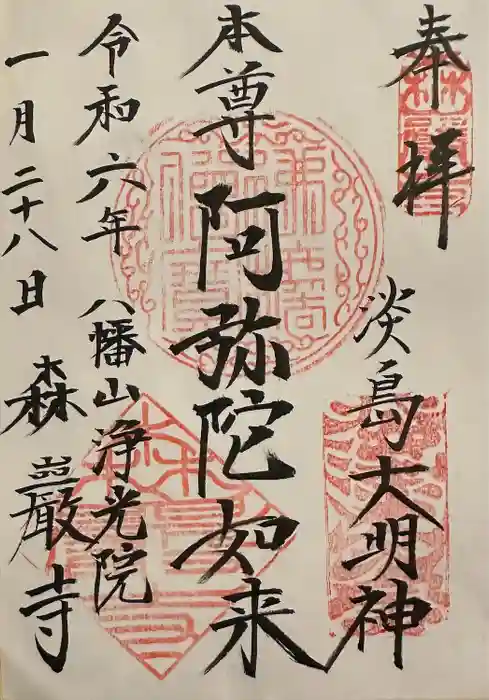 奉拝
淡島大明神
本尊阿弥陀如来
令和六年八幡山浄光院
一月二十八日森巌寺